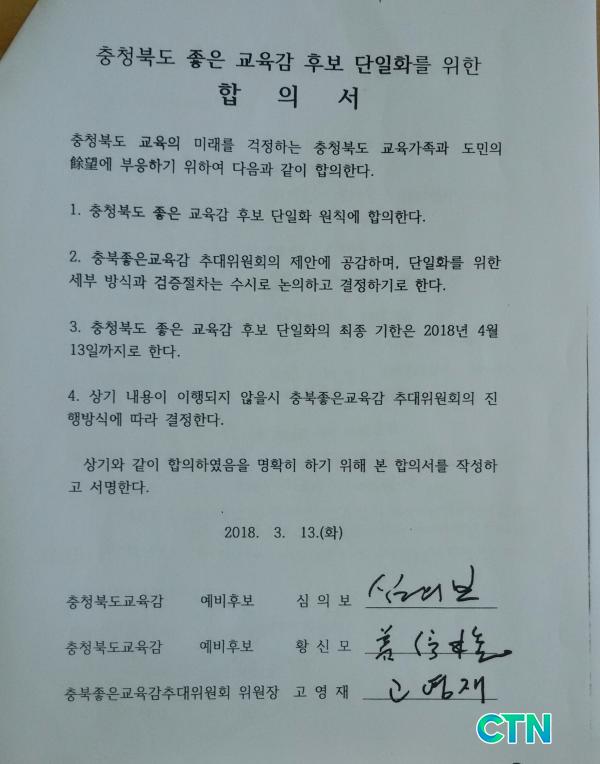 충청북도 좋은 교육감 후보 단일화를 위한
합 의 서
충청북도 교육의 미래를 걱정하는 충청북도 교육가족과 도민의
餘望에 부응하기 위하여 다음과 같이 합의한다.
1. 충청북도 좋은 교육감 후보 단일화 원칙에 합의한다.
2. 충북좋은교육감 추대위원회의 제안에 공감하며, 단일화를 위한
세부 방식과 검증절차는 수시로 논의하고 결정하기로 한다.
3. 충청북도 좋은 교육감 후보 단일화의 최종 기한은 2018년 4월
13일까지로 한다.
4. 상기 내용이 이행되지 않을시 충북좋은교육감 추대위원회의 진
행방식에 따라 결정한다.
상기와 같이 합의하였음을 명확히 하기 위해 본 합의서를 작성하
고 서명한다.
2018. 3. 13.(화)
충청북도교육감 예비후보 심의보 심의보
충청북도교육감 예비후보 황신모
충북좋은교육감추대위원회 위원장 고영재 고영재
CTN